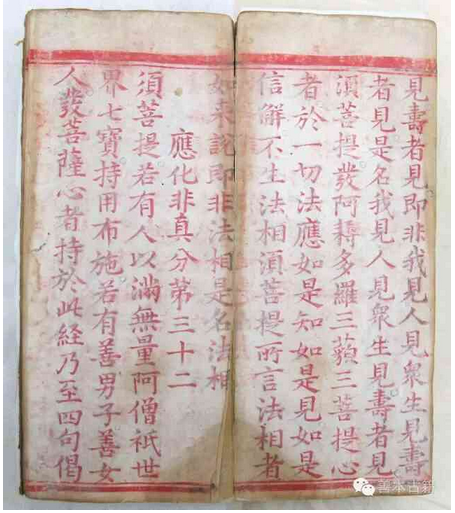 見壽者見即非我見人見衆生見壽
者見是名我見人見衆生見壽者見
須菩提發阿耨多羅三藐三菩提心
者於一切法應如是知如是見如是
信解不生法相須菩提所言法相者
如来說即非法相是名法相
應化非真分第三十二
須菩提若有人以滿無量阿僧祇世
界七寶持用布施若有善男子善女
人發菩薩心者持於此経乃至四句偈
善本古籍